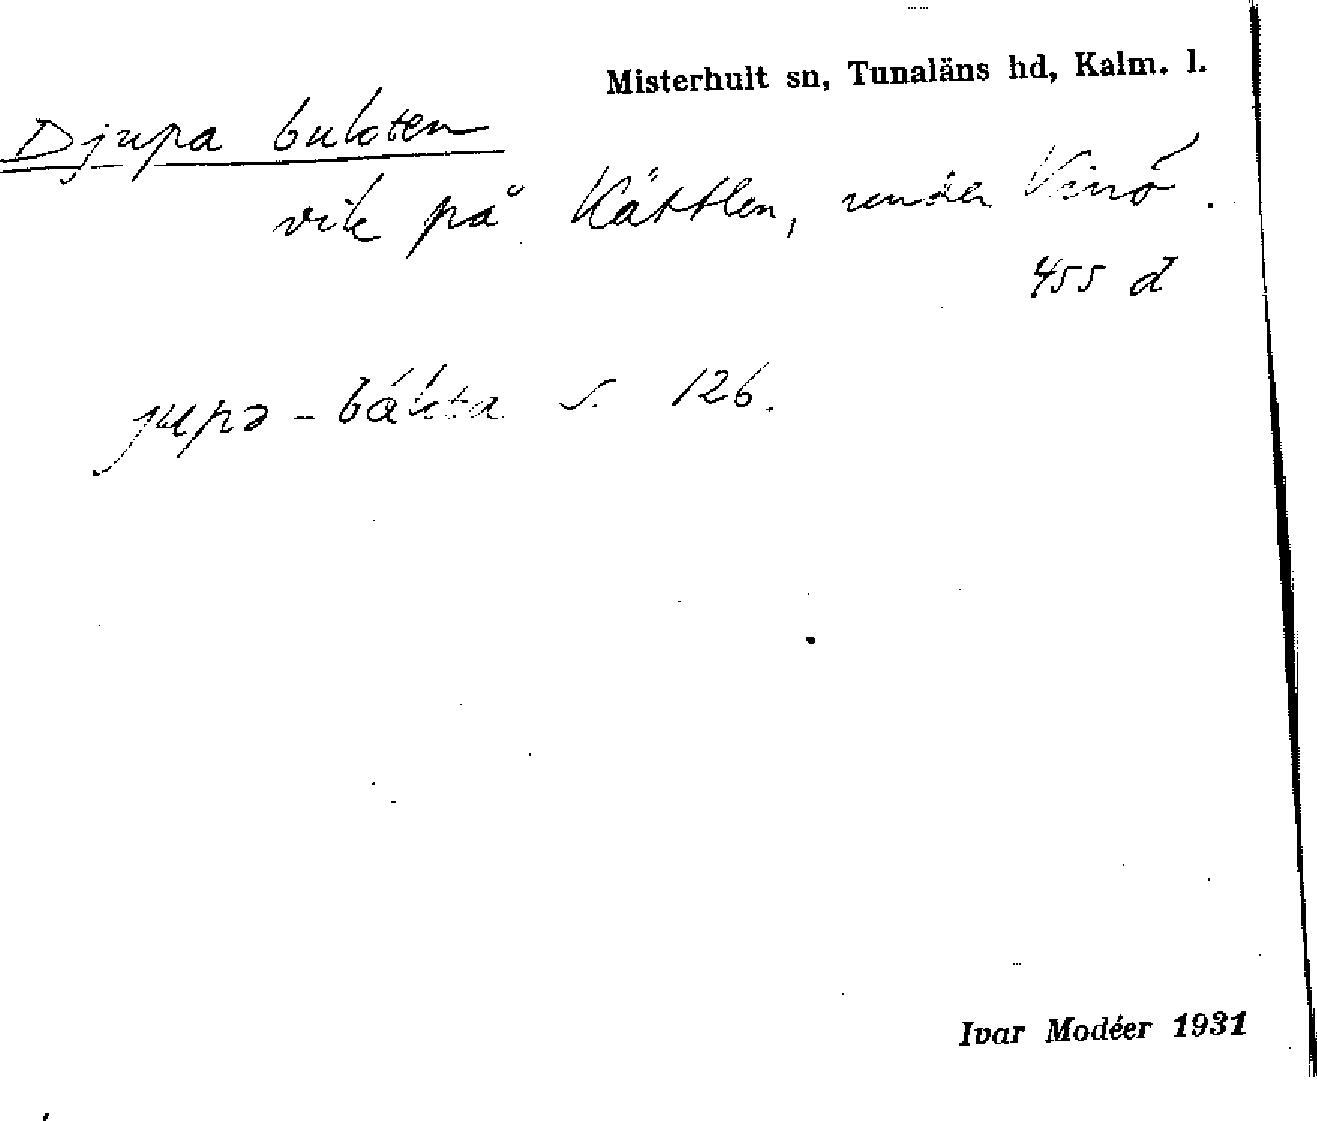 Misterhult sn, Tunaläns hd, Kalm. l.
Djupa bukten
vik på Kättlen, under Vinö.
455 d
jupə - búkta s. 126.
Ivar Modéer 1931